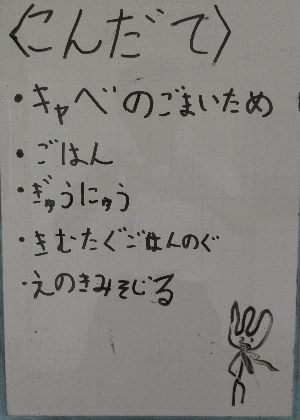 〈こんだて〉
・キャベのごまいため
・ごはん
・ぎゅうにゅう
・きむたくごはんのぐ
・えのきみそじる